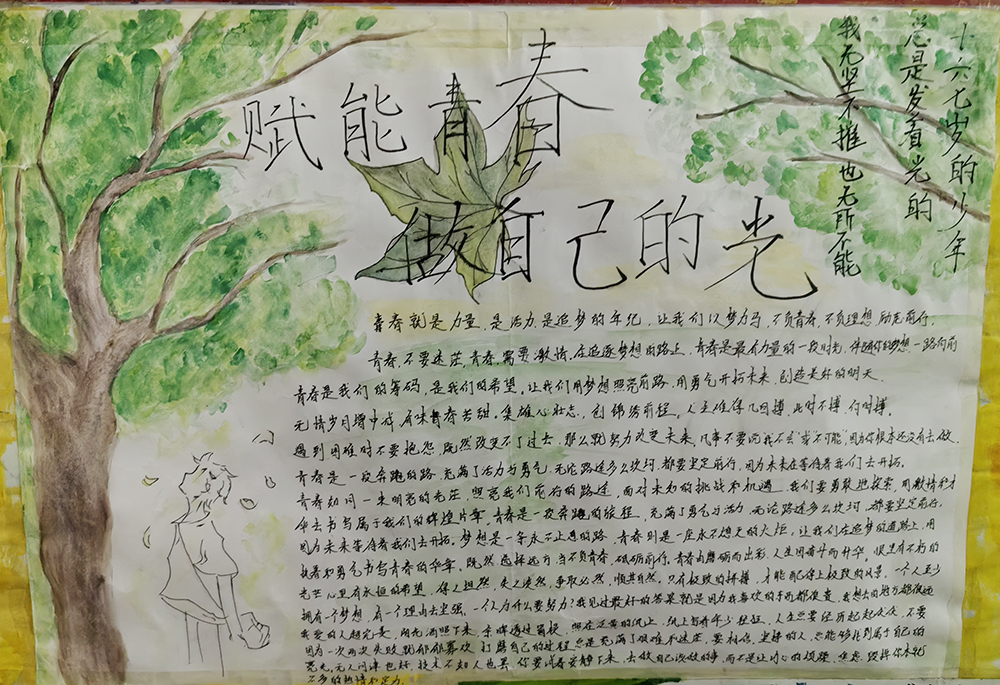 赋能青春
做自己的光
十六七岁的少年
总是发着光的
我无坚不摧也无所不能
青春就是力量,是活力,是追梦的年纪,让我们以梦为马,不负青春,不负理想,励志前行。
青春,不要迷茫,青春,需要激情,在追逐梦想的路上,青春是最有力量的一段时光,伴随你的梦想一路向前
青春是我们的筹码,是我们的希望。让我们用梦想照亮前路,用勇气开拓未来,创造美好的明天。
无情岁月增中减,有味青春苦甜,集雄心壮志,创锦绣前程。人生难得几回搏,此时不搏,何时搏。
遇到困难时不要抱怨,既然改变不了过去,那么就努力改变未来,凡事不要说"我不会"或"不可能",因为你根本还没有去做。
青春是一段奔跑的路,充满了活力与勇气,无论路途多么坎坷,都要坚定前行,因为未来在等待着我们去开拓。
青春如同一束明亮的光芒,照亮我们前行的路途,面对未知的挑战和机遇,我们要勇敢地探索,用激情和才
华去书写属于我们的辉煌片章,青春是一段奔跑的旅程,充满了勇气与活力,无论路途多么坎坷,都要坚定前行,
因为未来等待着我们去开拓。梦想是一条永不止息的路,青春则是一座永不熄灭的火炬,让我们在追梦的道路上,用
执着和勇气书写青春的华章。既然选择远方,当不负青春,砥砺前行,青春由磨砺而出彩,人生因奋斗而升华,眼里有不朽的
光芒心里有永恒的希望,得人坦然,失之淡然,争取必然,顺其自然,只有极致的拼搏,才能配得上极致的风景,一个人至少
拥有一个梦想,有一个理由去坚强。一个人为什么要努力?我见过最好的答案就是因为我喜欢的东西都很贵,我想去的地方都很远
我爱的人超完美,阳光洒照下来,余晖透过窗棂,照在泛黄的纸上,
因为一次两次失败就郁郁寡欢,打磨自己的过程总是充满了艰难不迷茫,要相信,坚持的人,总能够找到属于自己的
亮光,无人问津也好,技不如人也罢,你要试着安静下来,去做自己该做的事,而不是让内心的烦躁、焦虑,毁掉你本就
不多的热情和定力。